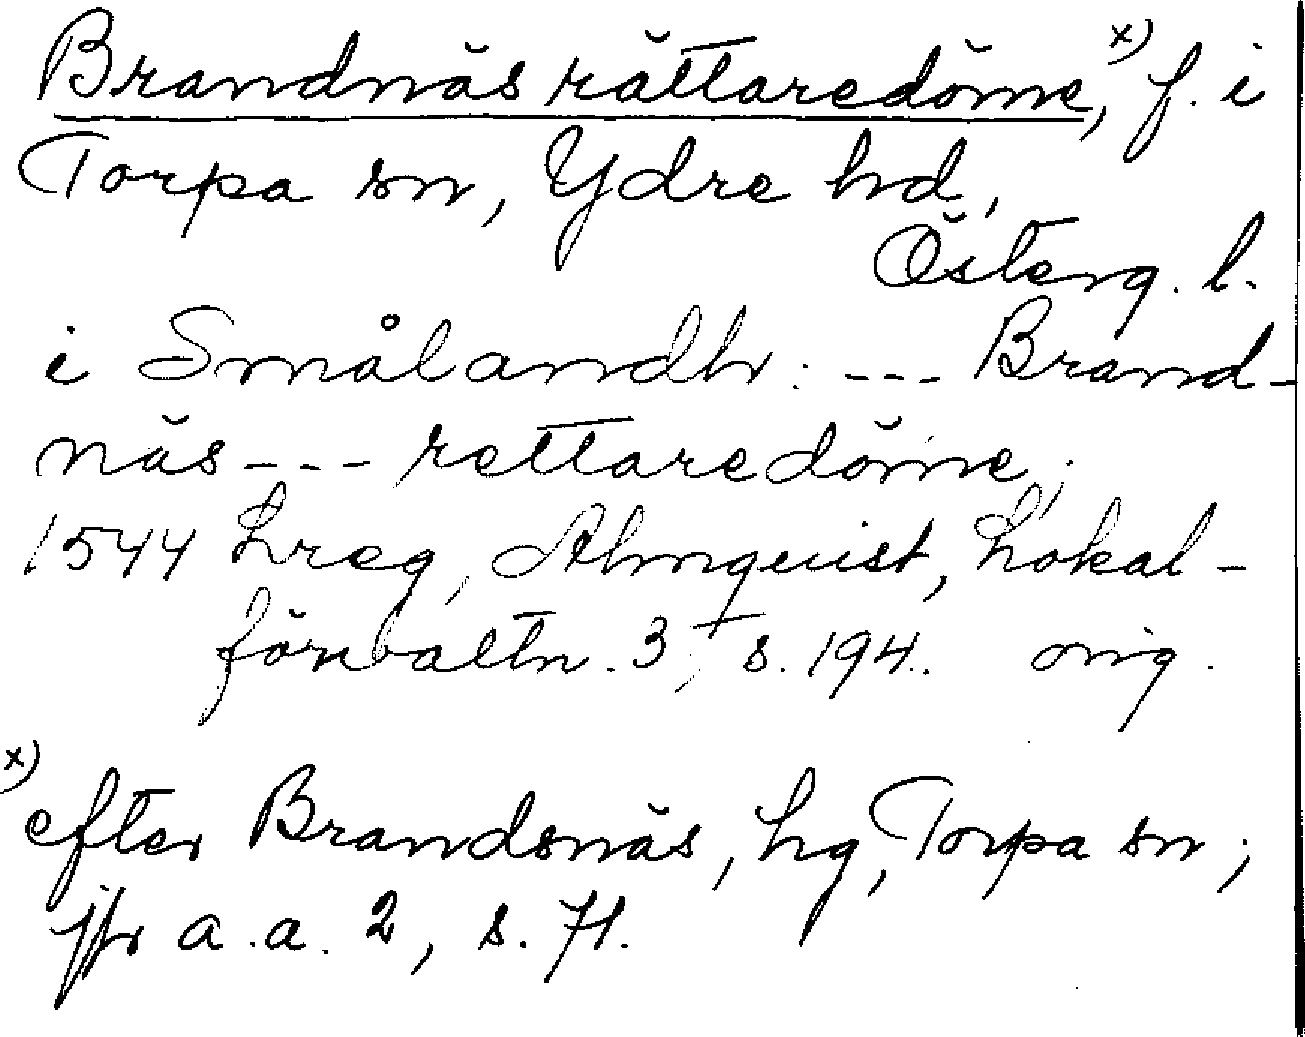 Brandnäs rättaredöme,ˣ⁾ f. i
Torpa sn, Ydre hd,
Österg. l.
i Smålandh: --- Brand-
näs --- rettaredöme;
1544 Lreg, Almquist, Lokal-
förvaltn. 3, s. 194. orig.
x)
efter Brandsnäs, hg, Torpa sn;
jfr a.a. 2, s. 71.